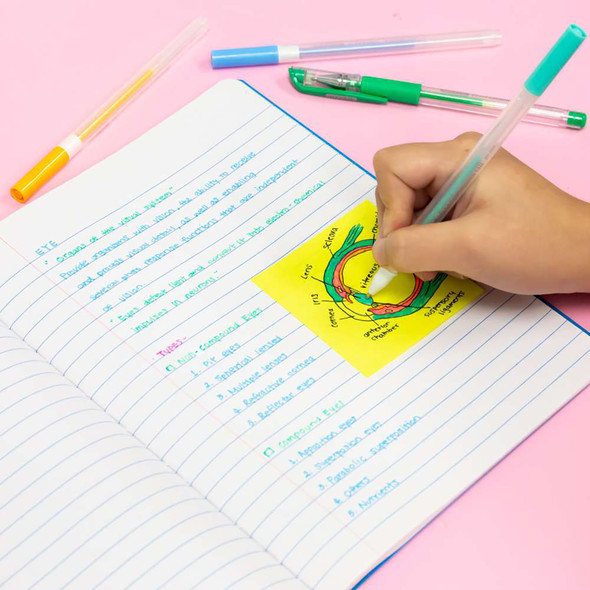 EYE
" Organs of the visual system"
Provide organisms with vision, the ability to receive
and process visual detail, as well as enabling
several photo response functions that are independent
of vision.
" Eyes detect light and convert it into electro-chemical
impulses in neurons "
TYPES:
Non-compound Eyes
1. Pit eyes
2. Spherical lensed
3. Multiple lenses
4. Refractive cornea
5. Reflector eyes
Compound Eyes
1. Apposition eyes
2. Superposition eyes
3. Parabolic superposition
4. Others
5. Nutrients
Sclera
Lens
Iris
cornea
anterior
chamber
suspensory
ligaments